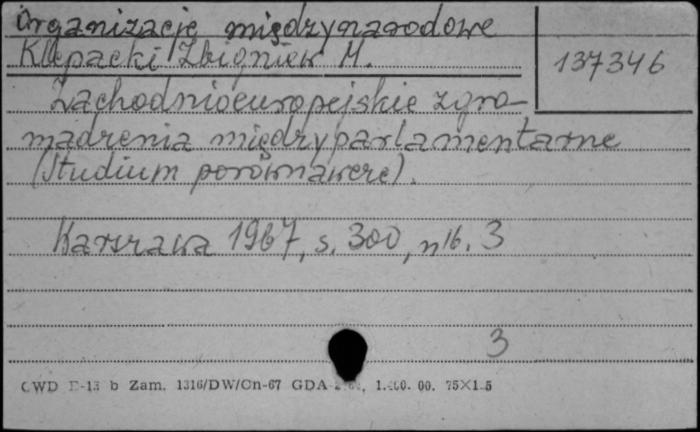 Organizacje międzynarodowe
Klepacki Zbigniew M.
137346
Zachodnioeuropejskie zgro-
madzenia międzyparlamentarne
(Studium porównawcze).
Warszawa 1967, s. 300, nlb. 3
3
CWD E-13 b Zam. 1316/DW/Cn-67 GDA 75X1.5